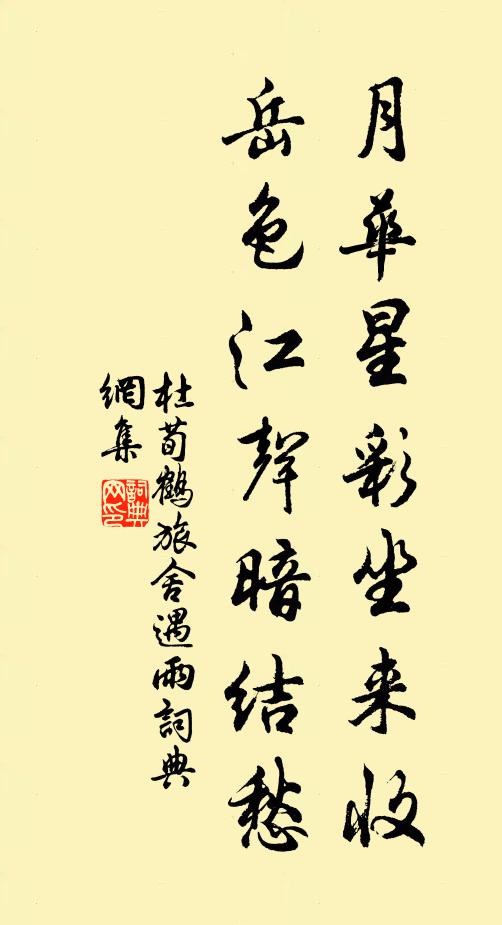 月華星彩坐来收
岳色江聲暗結愁
杜荀鶴旅舍遇雨詞典
網集
詞典
网印